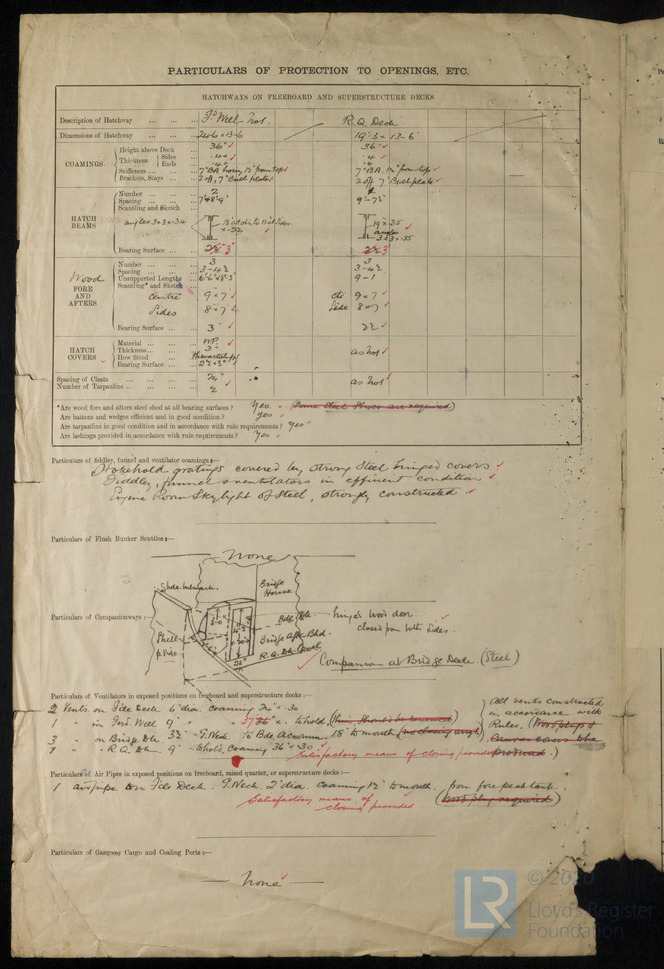 PARTICULARS OF PROTECTION TO OPENINGS, ETC.
HATCHWAYS ON FREEBOARD AND SUPERSTRUCTURE DECKS
Description of Hatchway ... ... ... Fd Well R. Q. Deck
Dimensions of Hatchway ... ... ... 24-6 x 13-6 19-3 x 13-6
COAMINGS
Height above Deck ... 36" 36"
Thickness Sides .40 .4
Ends .4 .4
Stiffeners ... 7" BA 7" BA
Brackets, Stays ... 2 off, 7" Bush plates 2 off 7" Bush plates
HATCH BEAMS
Number ... 2
Spacing ...
Scantling and Sketch
angles 3 x 3 x .34
angles
3 x 3 x .35
Bearing Surface ... 3" 3"
Wood
FORE AND AFTERS
Number ... 3 3
Spacing ... 3-4½ 3-4½
Unsupported Lengths 9-1
Scantling* and Sketch
centre 9 x 7 ctr 9 x 7
Sides 8 x 7 Side 8 x 7
Bearing Surface ... 3" 2½
HATCH COVERS
Material ... WP.
Thickness ... 3"
How fitted
Bearing Surface ...
as No 1
Spacing of Cleats ... 24"
Number of Tarpaulins ... 2
as No 1
*Are wood fore and afters steel shod at all bearing surfaces? Yes. (Some steel shoes are required)
Are battens and wedges efficient and in good condition? Yes
Are tarpaulins in good condition and in accordance with rule requirements? Yes
Are lashings provided in accordance with rule requirements? Yes
Particulars of fiddley, funnel and ventilator coamings:—
Stokehold gratings covered by strong steel hinged covers
Fiddley, funnel & ventilators in efficient condition
Engine Room Skylight of Steel, strongly constructed
Particulars of Flush Bunker Scuttles:—
None
Side bulwark.
Bridge House
Particulars of Companionways:—
Bdge Dk.
hinged wood door
closed from both sides.
Bridge Aft Bhd.
R. Q. Dk level
22"
Companion at Bridge Deck (Steel)
Particulars of Ventilators in exposed positions on freeboard and superstructure decks:—
2 Vents. on Fcle Deck 6" dia. coaming 30" x .30
1 " in Fwd. Well 9" " 36" " to hold. (this should be renewed)
3 " on Bridge Dk 3½ " G. Neck to Bdge Accomn. 18" to mouth. (no closing arrgt)
" R. Q. Dk. 9" to hold, Coaming 36" x .30
Satisfactory means of closing provided
All vents constructed
in accordance with
Rules, (Wood plugs &
Canvas covers to be
produced.)
Particulars of Air Pipes in exposed positions on freeboard, raised quarter, or superstructure decks:—
1 air pipe on Fcle Deck. G. Neck 2" dia. Coaming 18" to mouth. from fore peak tank.
Satisfactory means of
closing provided
(Wood plug required)
Particulars of Gangway Cargo and Coaling Ports:—
None
LR
Lloyd's Register
Foundation